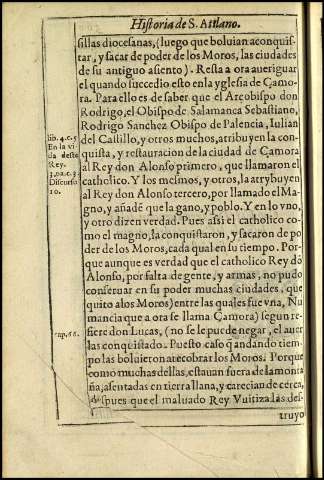 Historia de S. Atilano.
sillas diocesanas, (luego que boluian a conquis-
tar, y sacar de poder de los Moros, las ciudades
de su antiguo asiento). Resta aora aueriguar
el quando succedio esto en la yglesia de Çamo-
ra. Para ello es de saber que el Arçobispo don
Rodrigo, el Obispo de Salamanca Sebastiano,
Rodrigo Sanchez Obispo de Palencia, Iulian
del Castillo, y otros muchos, atribuyen la con-
quista, y restauracion de la ciudad de Çamora
al Rey don Alonso primero, que llamaron el
catholico. Y los mesmos, y otros, la atrybuyen
al Rey don Alonso tercero, por llamado el Ma-
gno, y añadẽ que la gano, y poblo. Y en lo vno,
y otro dizen verdad. Pues assi el catholico co-
mo el magno, la conquistaron, y sacaron de po
der de los Moros, cada qual en su tiempo. Por-
que aunque es verdad que el catholico Rey dõ
Alonso, por falta de gente, y armas, no pudo
conseruar en su poder muchas ciudades, que
quito a los Moros) entre las quales fue vna, Nu
mancia que a ora se llama Çamora) segun re-
fiere don Lucas, (no se le puede negar, el auer
las conquistado. Puesto caso q̃ andando tiem-
po las boluieron a recobrar los Moros. Porque
como muchas dellas, estauan fuera de la monta
ña, asentadas en tierra llana, y carecian de cerca,
despues que el maluado Rey Vuitiza las des-
truyo
lib. 4. c. 5
En la vi
da deste
Rey.
3. pa. c. 3.
Discurso
10.
cap. 68.